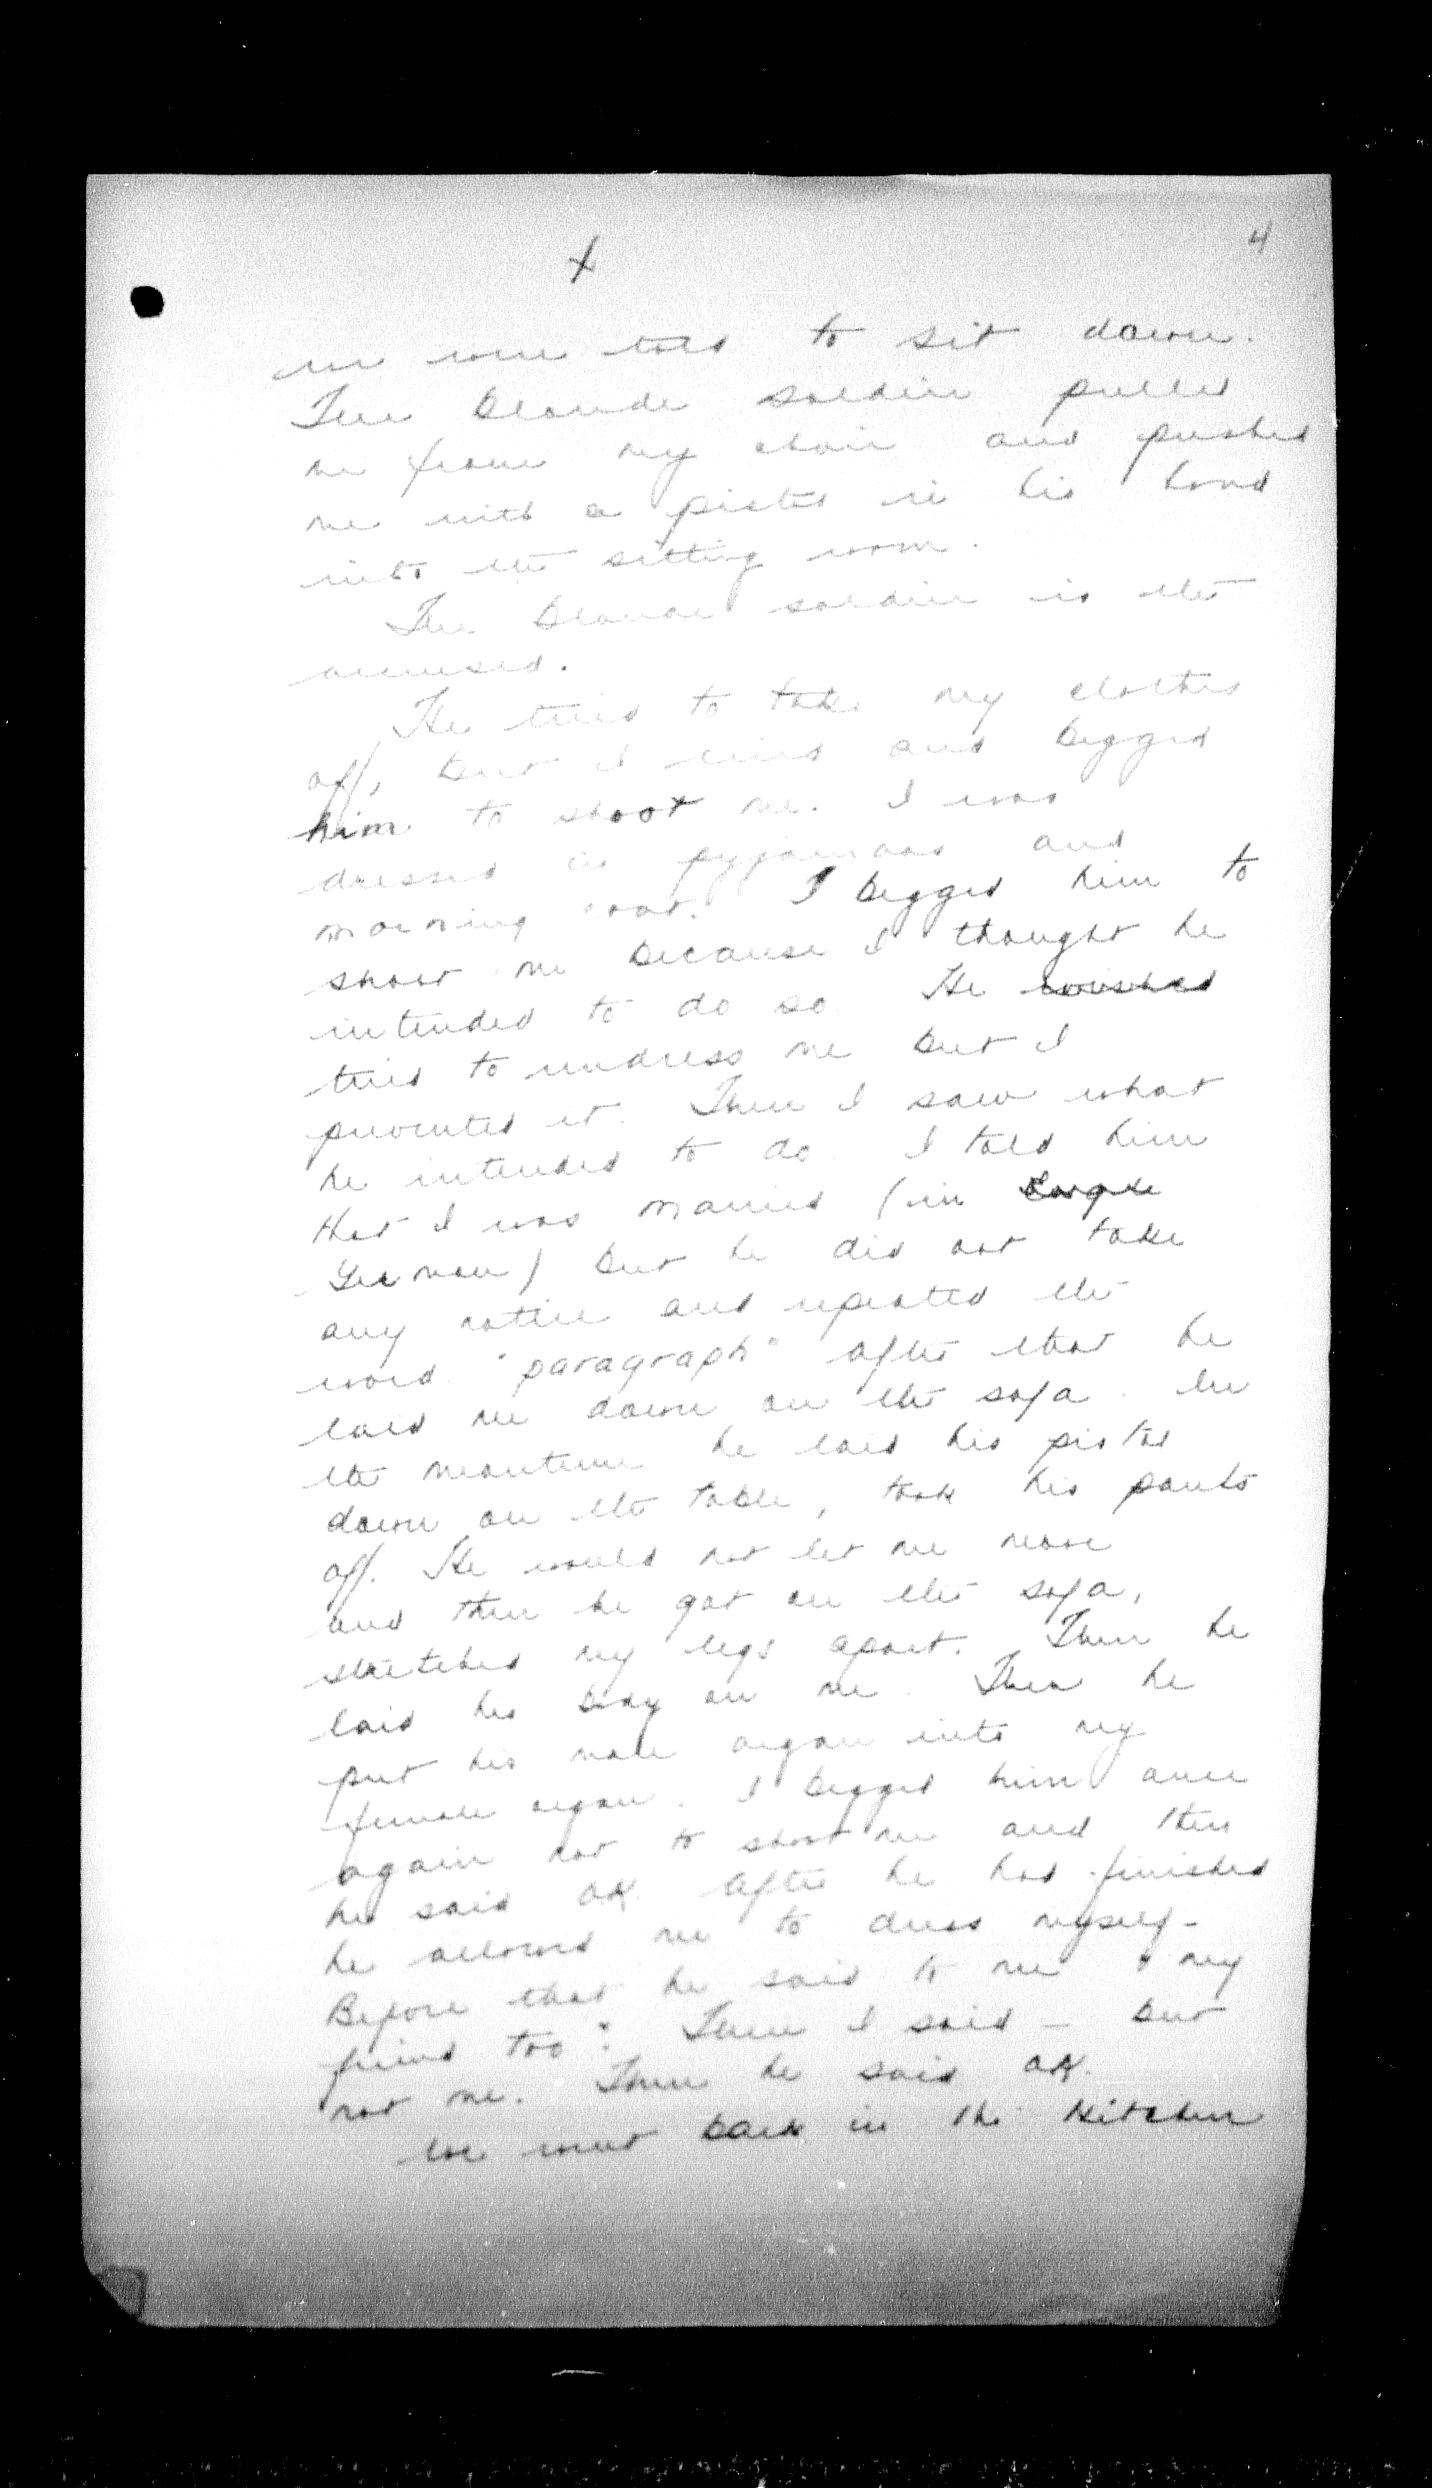 4
x
we were told to sit down.
The blonde soldier pulled
me from my chair and pushed
me with a pistol in his hand
into the sitting room.
The blonde soldier is the
accused.
He tried to take my clothes
off, but I cried and begged
him to shoot me. I was
dressed in pyjamas and
morning coat. I begged him to
shoot me because I thought he
intended to do so. He
tried to undress me but I
prevented it. Then I saw what
he intended to do. I told him
that I was married (in
German) but he did not take
any notice and repeated the
word "paragraph" after that he
laid me down on the sofa. In
the meantime he laid his pistol
down on the table, took his pants
off. He would not let me move
and then he got on the sofa,
stretched my legs apart. Then he
laid his body on me. Then he
put his male organ into my
female organ. I begged him once
again not to shoot me and then
he said OK. After he had finished
he allowed me to dress myself -
Before that he said to me "my
friend too". Then I said - but
not me. Then he said OK.
We went back in the kitchen